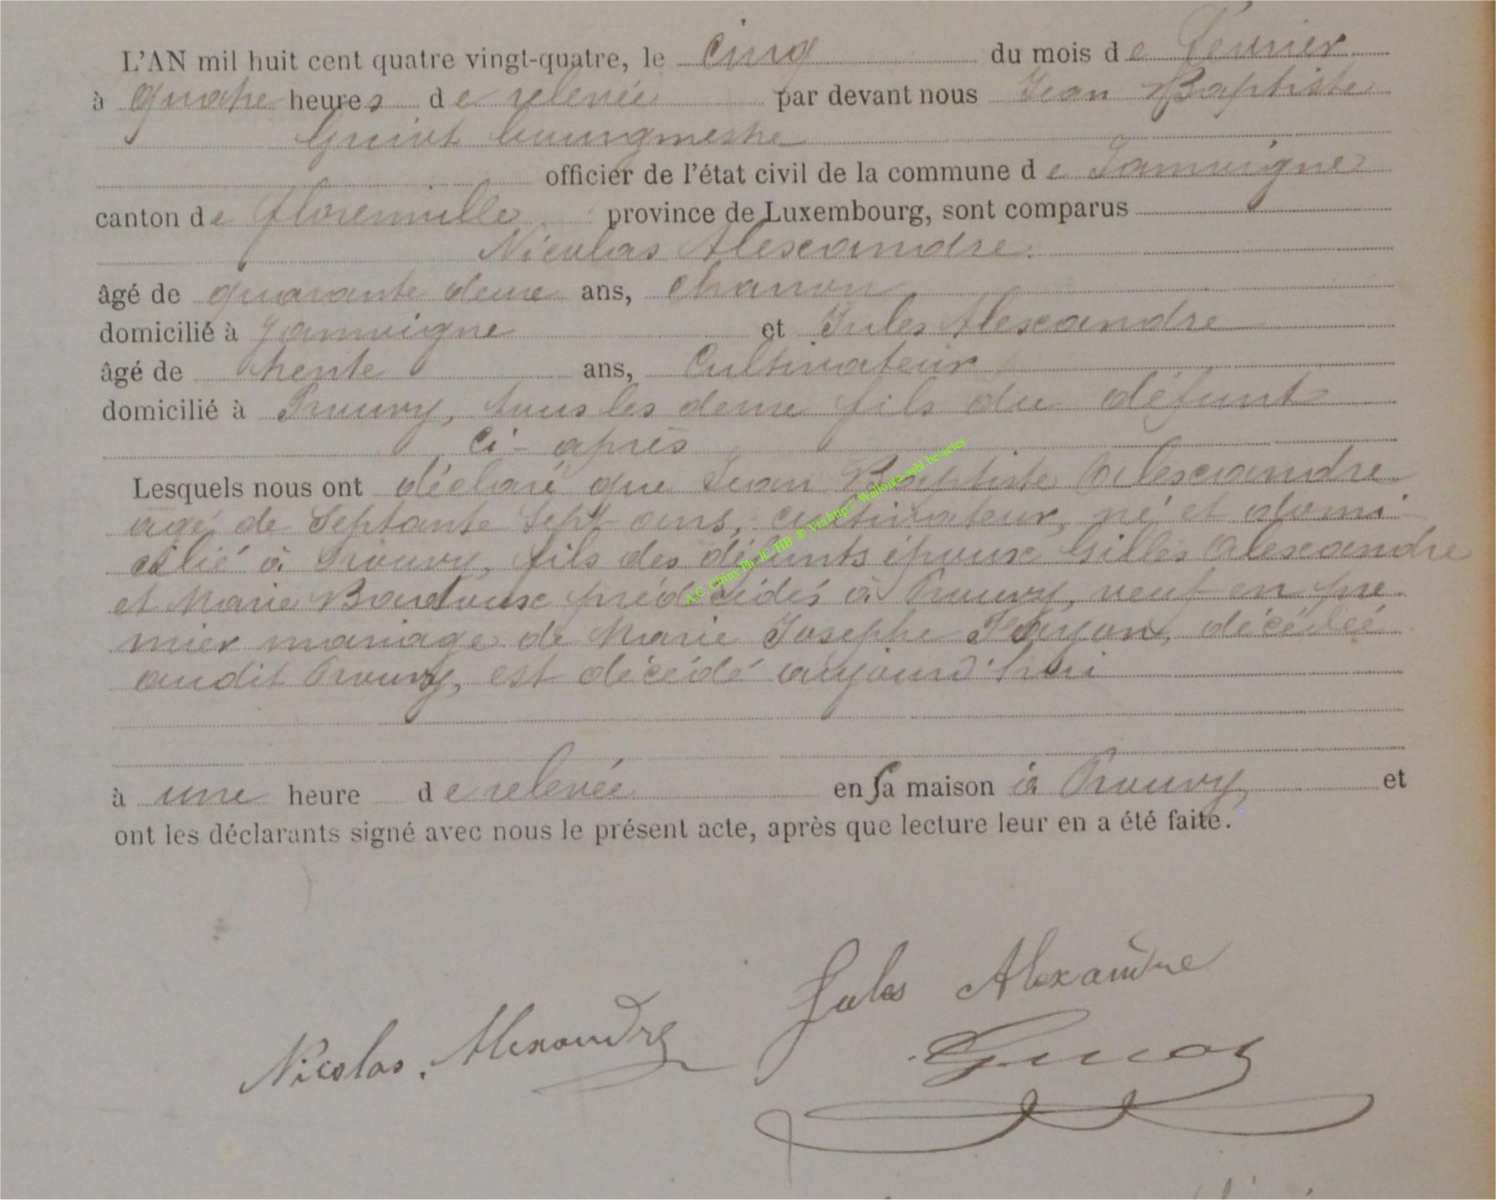 L'AN mil huit cent quatre vingt-quatre, le cinq du mois de Février
à quatre heures de relevée par devant nous Jean Baptiste
bourgmestre
officier de l'état civil de la commune de Jamoigne
canton de florenville province de Luxembourg, sont comparus
Nicolas Alexandre
âgé de quarante deux ans, charron
domicilié à Jamoigne et Jules Alexandre
âgé de trente ans, Cultivateur
domicilié à Prouvy, tous les deux fils du défunt
ci-après
Lesquels nous ont déclaré que Jean Baptiste Alexandre
agé de Septante Sept ans, cultivateur, né et domi
cilié à Prouvy, fils des défunts époux Gilles Alexandre
et Marie prédécédés à Prouvy, veuf en pre
mier mariage de Marie Josephe décédée
audit Prouvy, est décédé aujourd'hui
à une heure de relevée en sa maison à Prouvy, et
ont les déclarants signé avec nous le présent acte, après que lecture leur en a été faite.
Jules Alexandre
Nicolas Alexandre